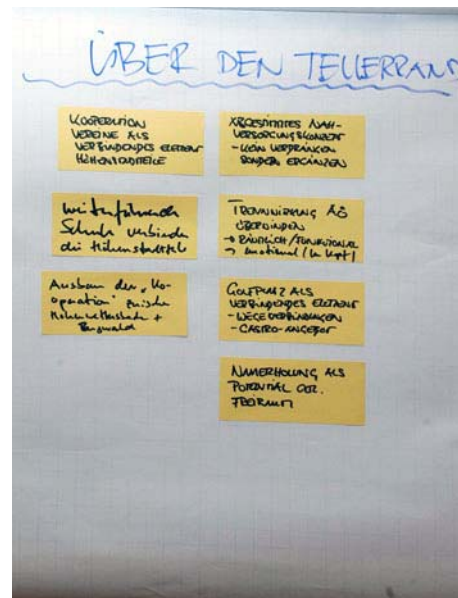 ÜBER DEN TELLERRAND
KOOPERATION
VEREINE ALS
VERBINDENDES ELEMENT
HÖHENSTADTTEILE
weiterführende
Schule verbindet
die Höhenstadtteile
Ausbau der „Ko-
operation" zwischen
Hohenwettersbach +
Bergwald
ABGESTIMMTES NAH-
VERSORGUNGSKONZEPT
- KEIN VERDRÄNGEN
SONDERN ERGÄNZEN
TRENNWIRKUNG
ÜBERWINDEN
→ RÄUMLICH/FUNKTIONAL
→ emotional (im Kopf)
GOLFPLATZ ALS
VERBINDENDES ELEMENT
- WEGEVERBINDUNGEN
- GASTRO-ANGEBOT
NAHERHOLUNG ALS
POTENTIAL
FREIRAUM